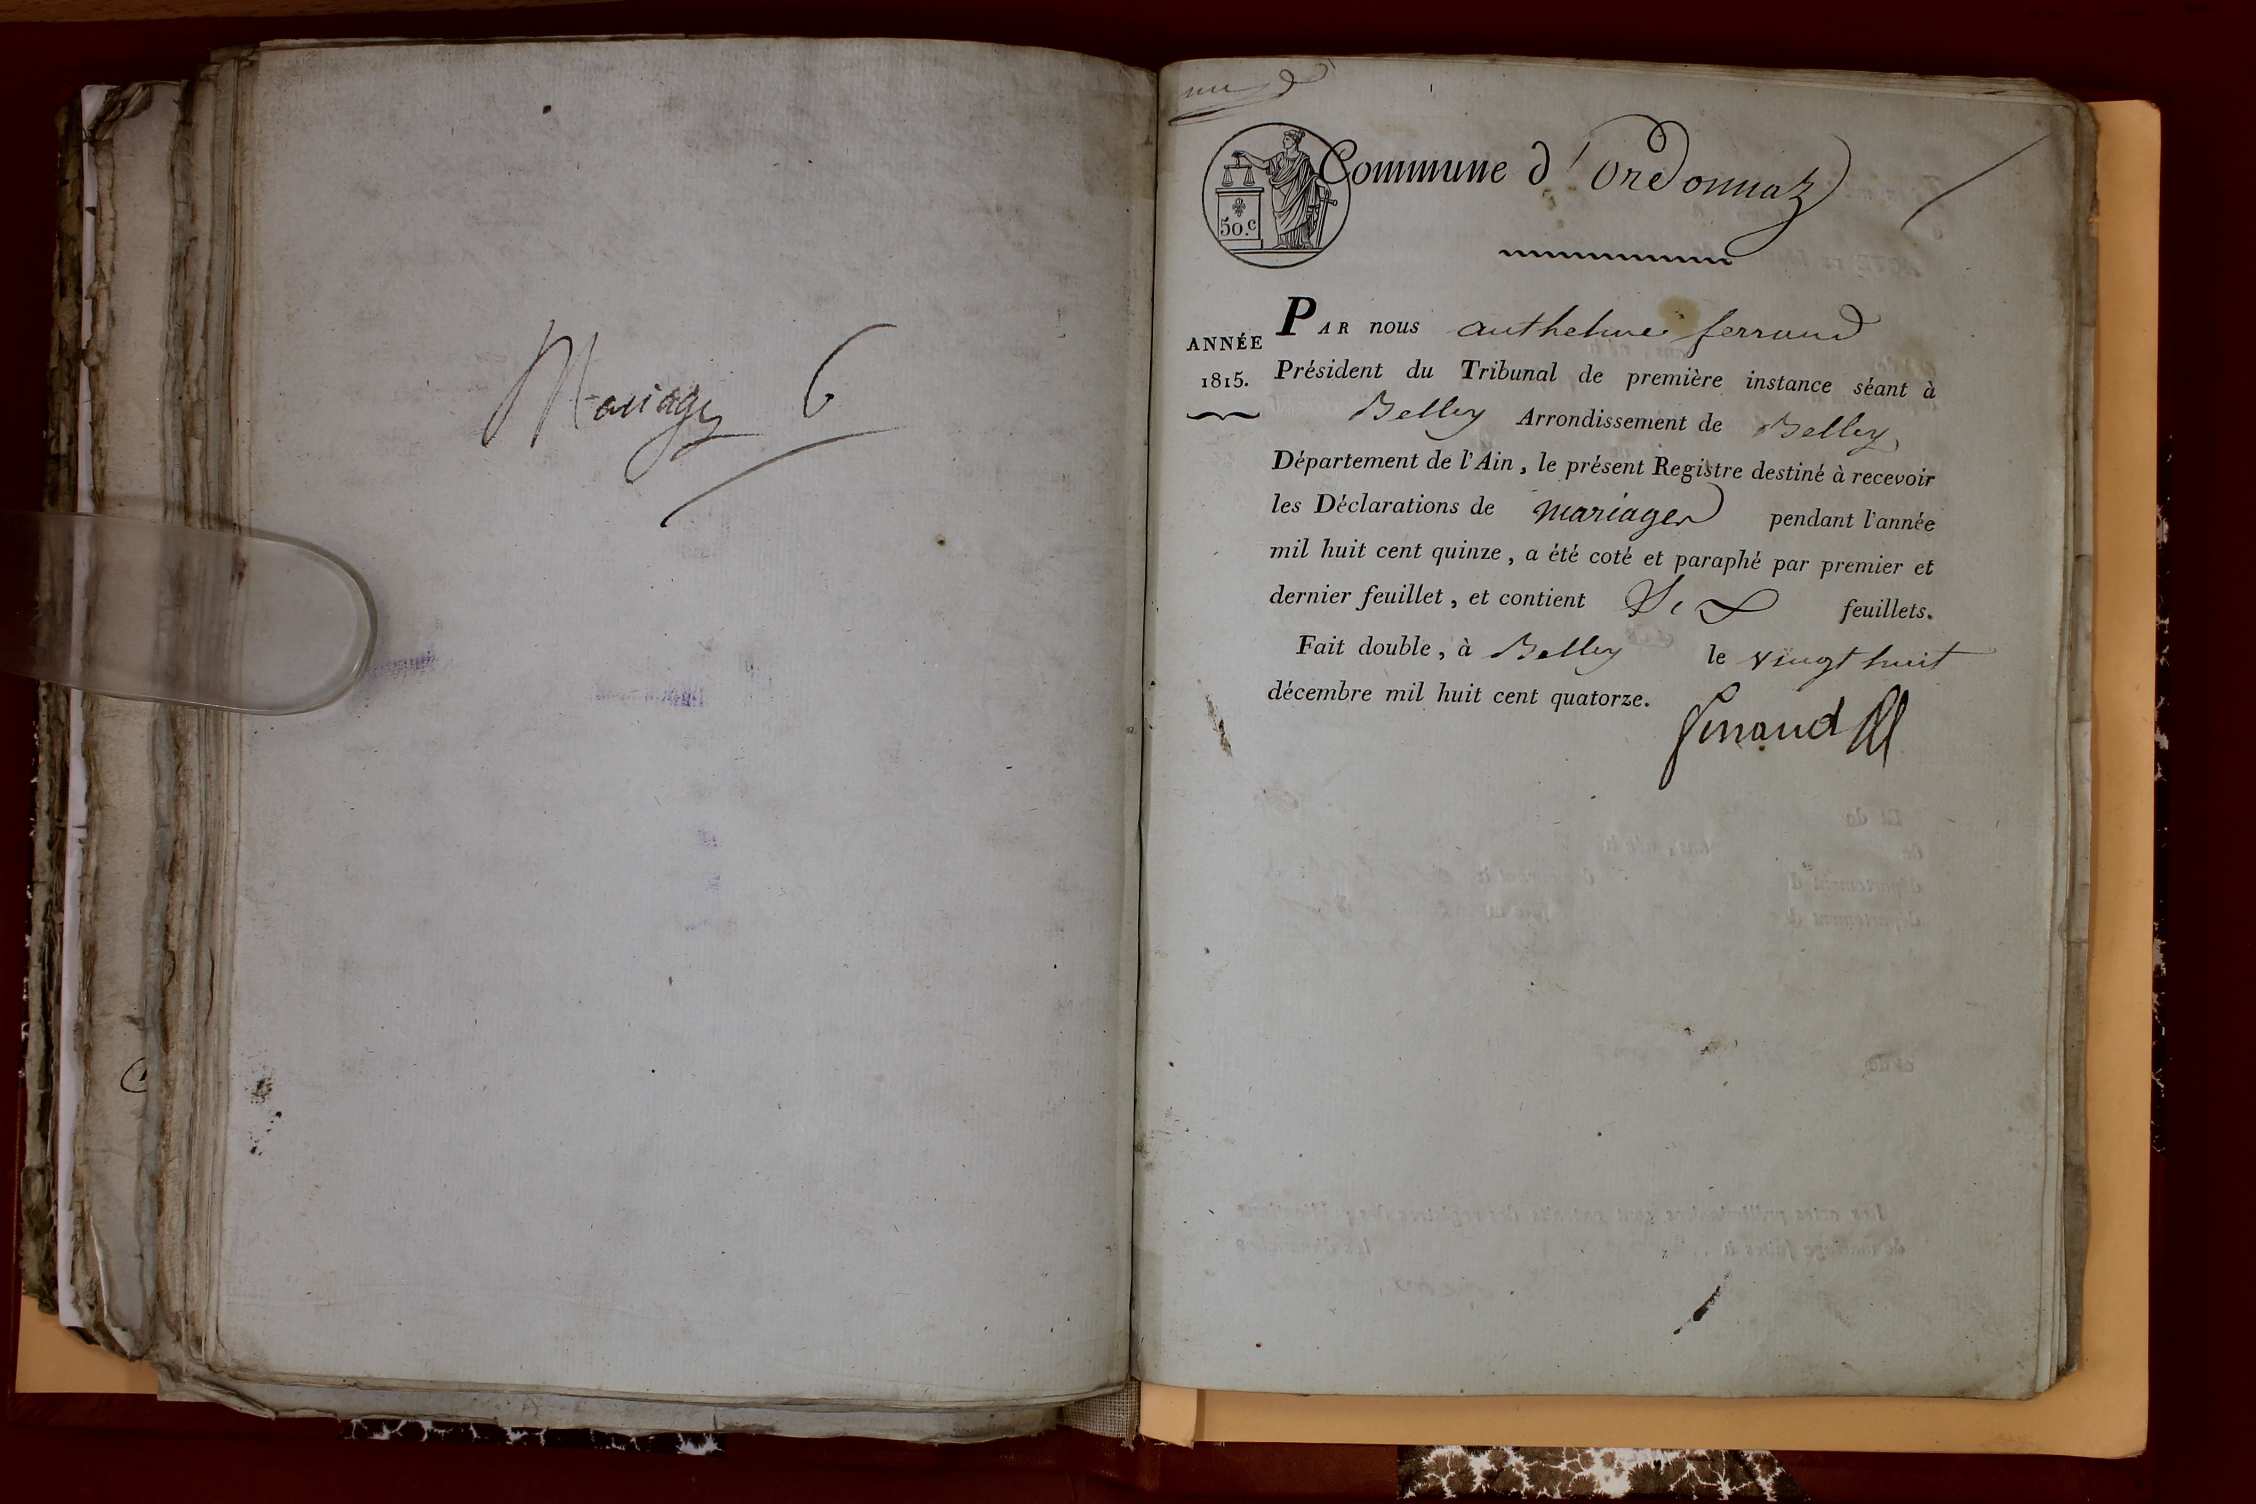 Mariages 6
Commune d'Ordonnaz
50.c
PAR nous anthelme ferrand
ANNÉE
1815.
Président du Tribunal de première instance séant à
Belley Arrondissement de Belley,
Département de l'Ain, le présent Registre destiné à recevoir
les Déclarations de mariages pendant l'année
mil huit cent quinze, a été coté et paraphé par premier et
dernier feuillet, et contient Six feuillets.
Fait double, à Belley le vingt huit
décembre mil huit cent quatorze.
ferrand